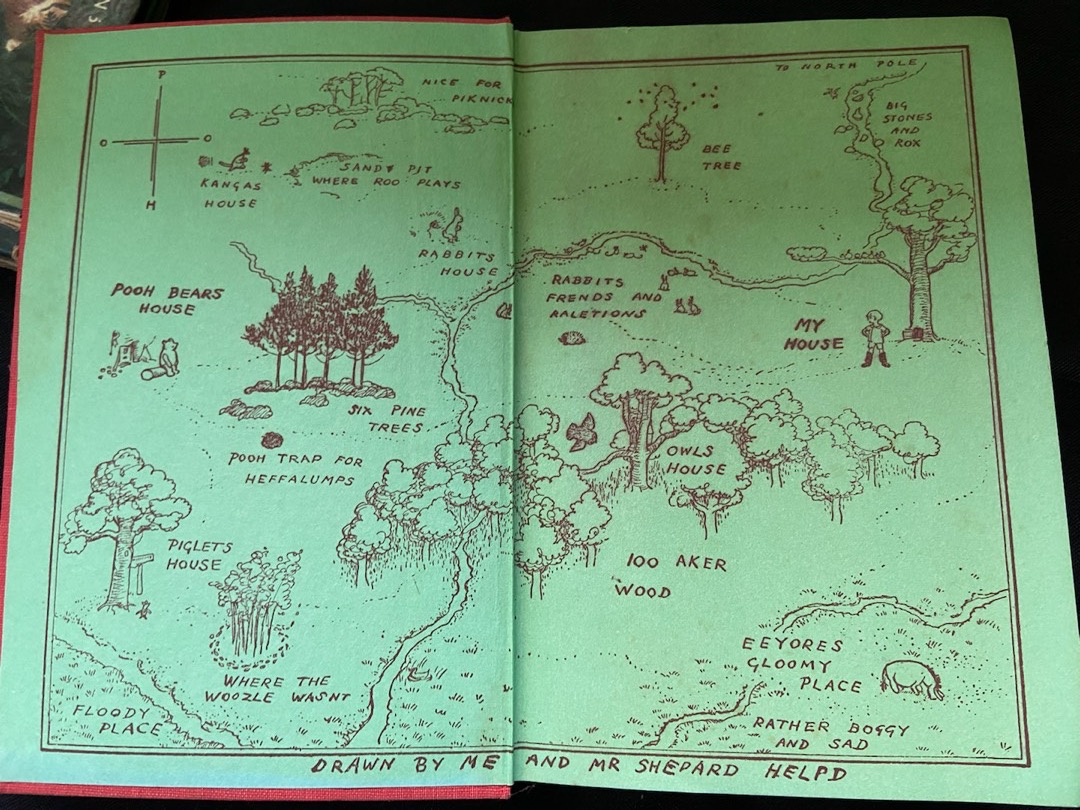 P
O
O
H
NICE FOR
PIKNICK
TO NORTH POLE
BIG
STONES
AND
ROX
BEE
TREE
SANDY PIT
WHERE ROO PLAYS
KANGAS
HOUSE
RABBITS
HOUSE
POOH BEARS
HOUSE
RABBITS
FRENDS AND
RALETIONS
MY
HOUSE
SIX PINE
TREES
POOH TRAP FOR
HEFFALUMPS
OWLS
HOUSE
PIGLETS
HOUSE
100 AKER
WOOD
EEYORES
GLOOMY
PLACE
WHERE THE
WOOZLE WASNT
FLOODY
PLACE
RATHER BOGGY
AND SAD
DRAWN BY ME AND MR SHEPARD HELPD